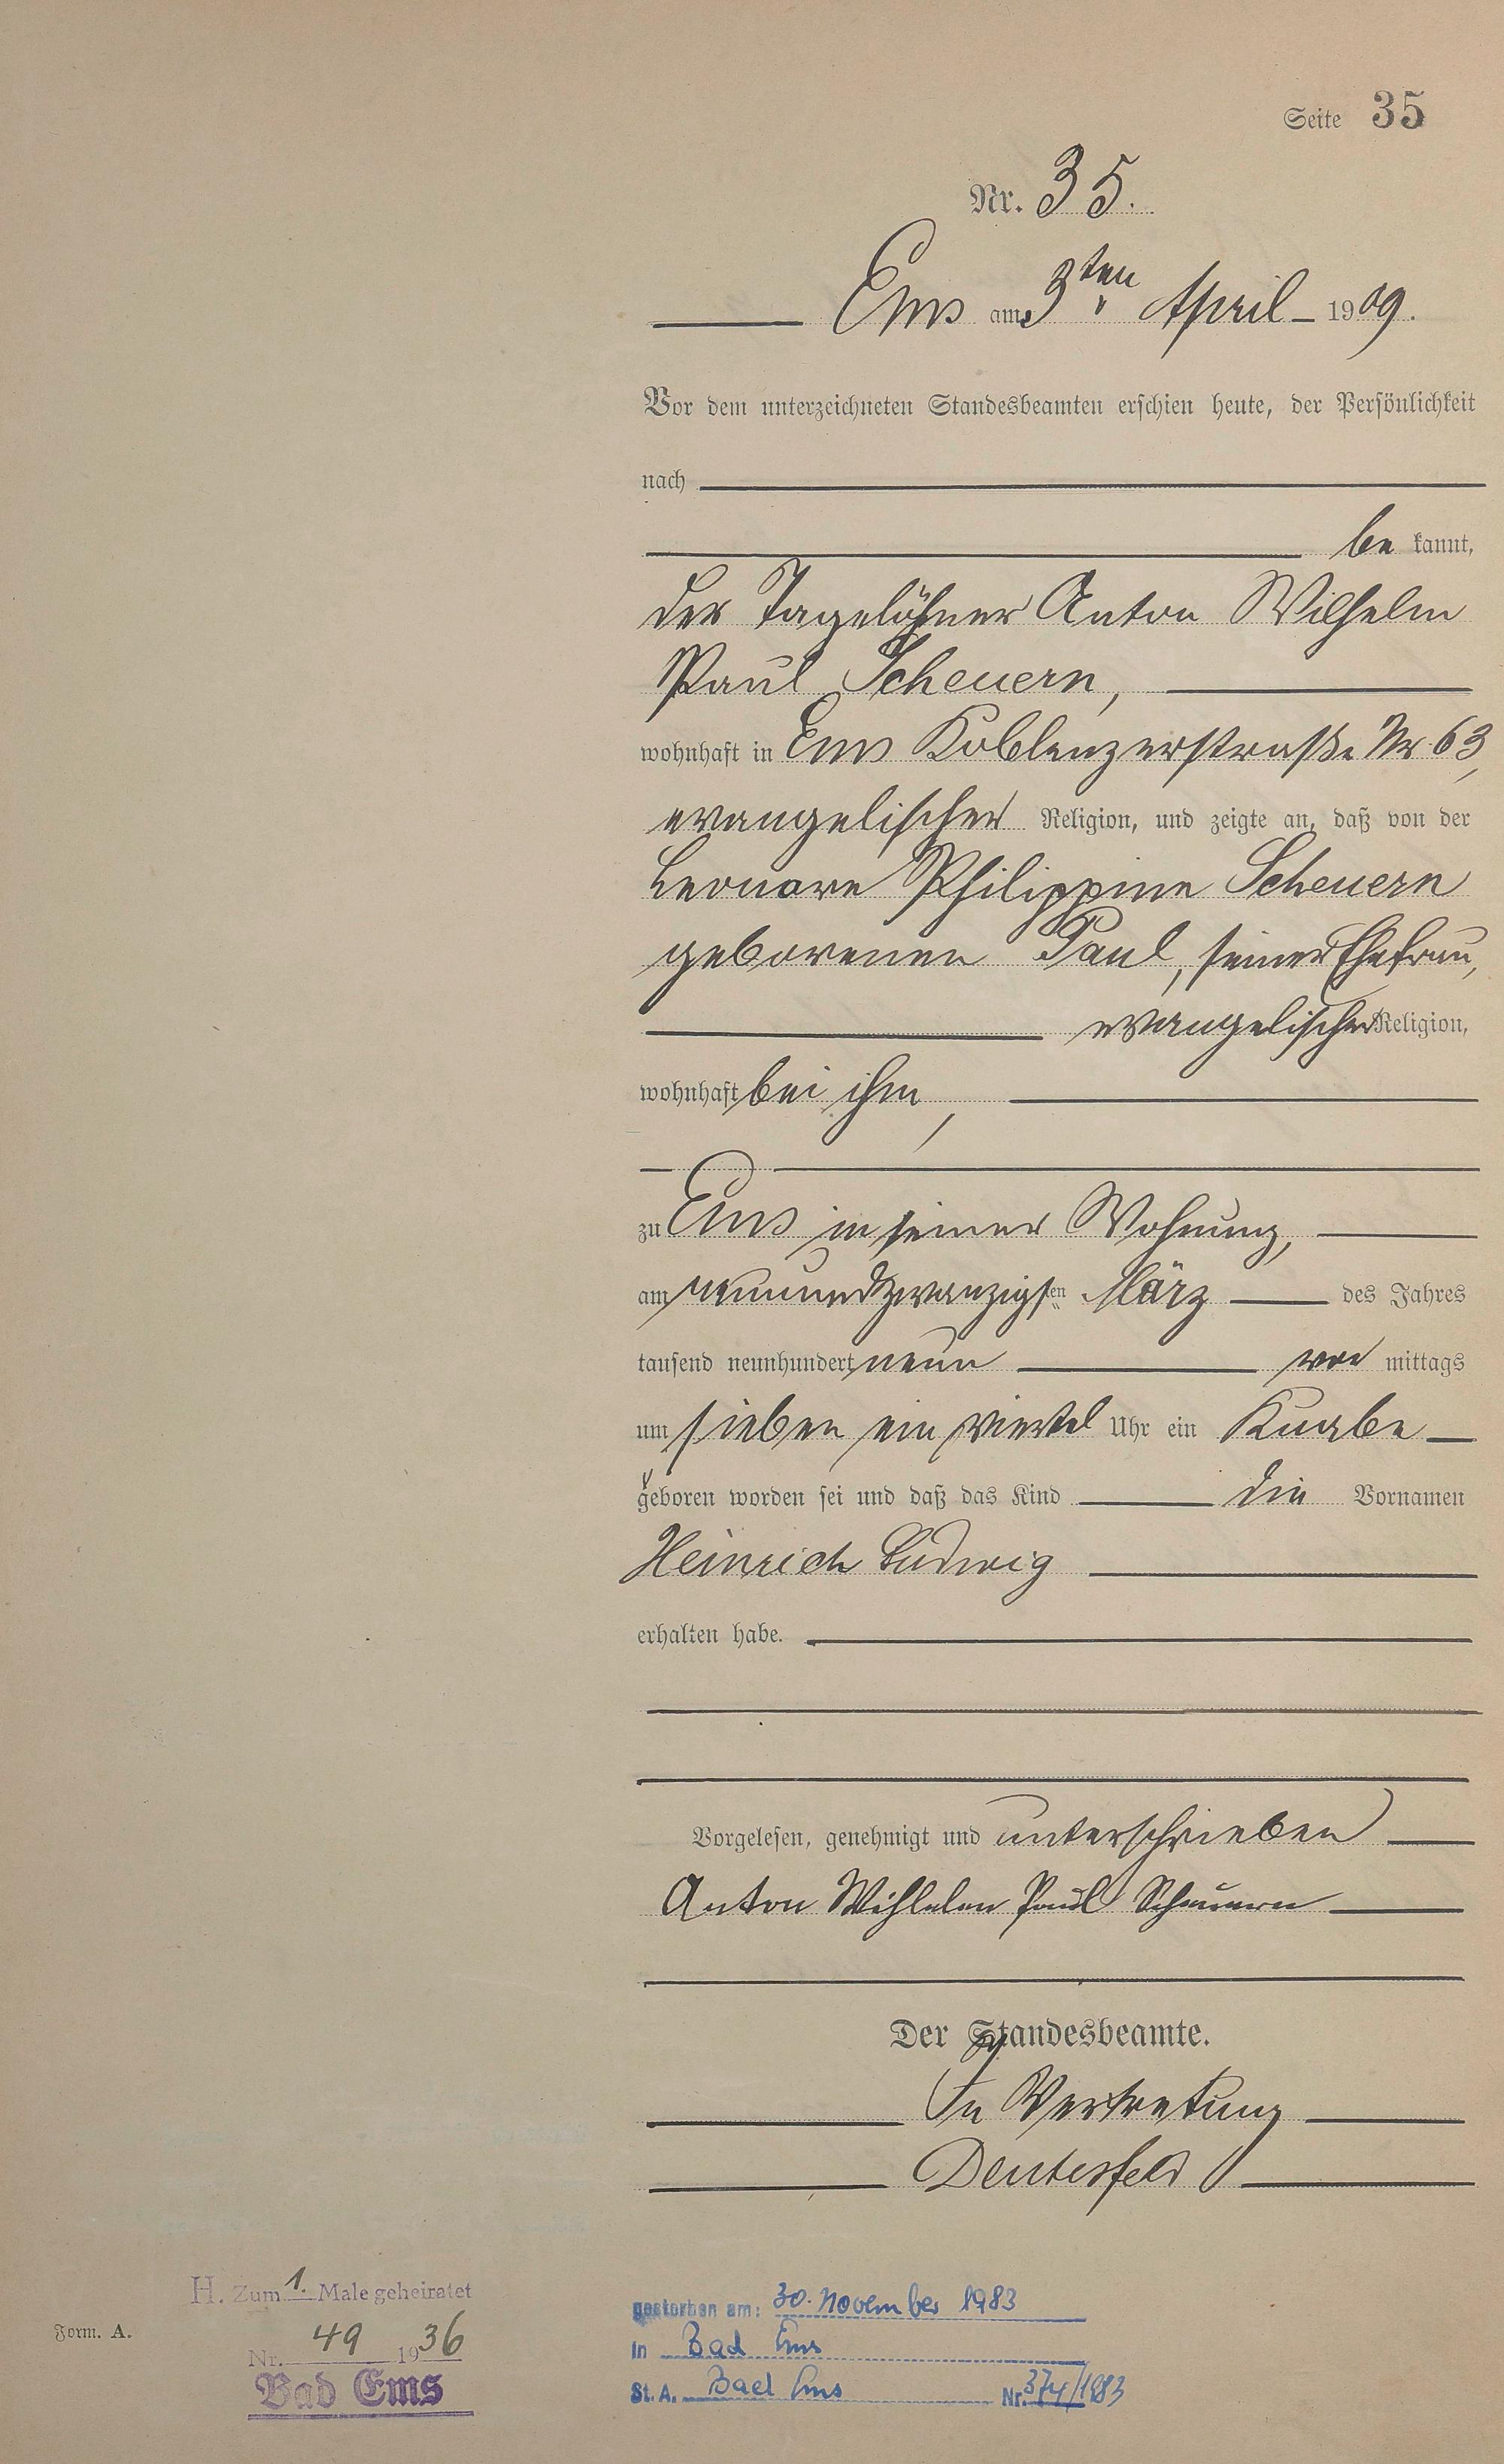 Seite 35
Nr. 35.
Ems am 3ten April 1909.
Vor dem unterzeichneten Standesbeamten erschien heute, der Persönlichkeit
nach
be kannt,
der Tagelöhner Anton Wilhelm
Paul Scheuern,
wohnhaft in Ems Koblenzerstraße Nr 63,
evangelischer Religion, und zeigte an, daß von der
Leonore Philippine Scheuern
geborenen Paul, seiner Ehefrau,
evangelischer Religion,
wohnhaft bei ihm,
zu Ems in seiner Wohnung,
am neunundzwanzigsten März des Jahres
tausend neunhundert neun vor mittags
um sieben ein viertel Uhr ein Knabe
geboren worden sei und daß das Kind die Vornamen
Heinrich Ludwig
erhalten habe.
Vorgelesen, genehmigt und unterschrieben
Anton Wilhelm Paul Scheuern
Der Standesbeamte.
In Vertretung
H. Zum 1. Male geheiratet
Nr. 49 1936
Bad Ems
Form. A.
gestorben am: 30. November 1983
in Bad Ems
St. A. Bad Ems Nr. 374/1983